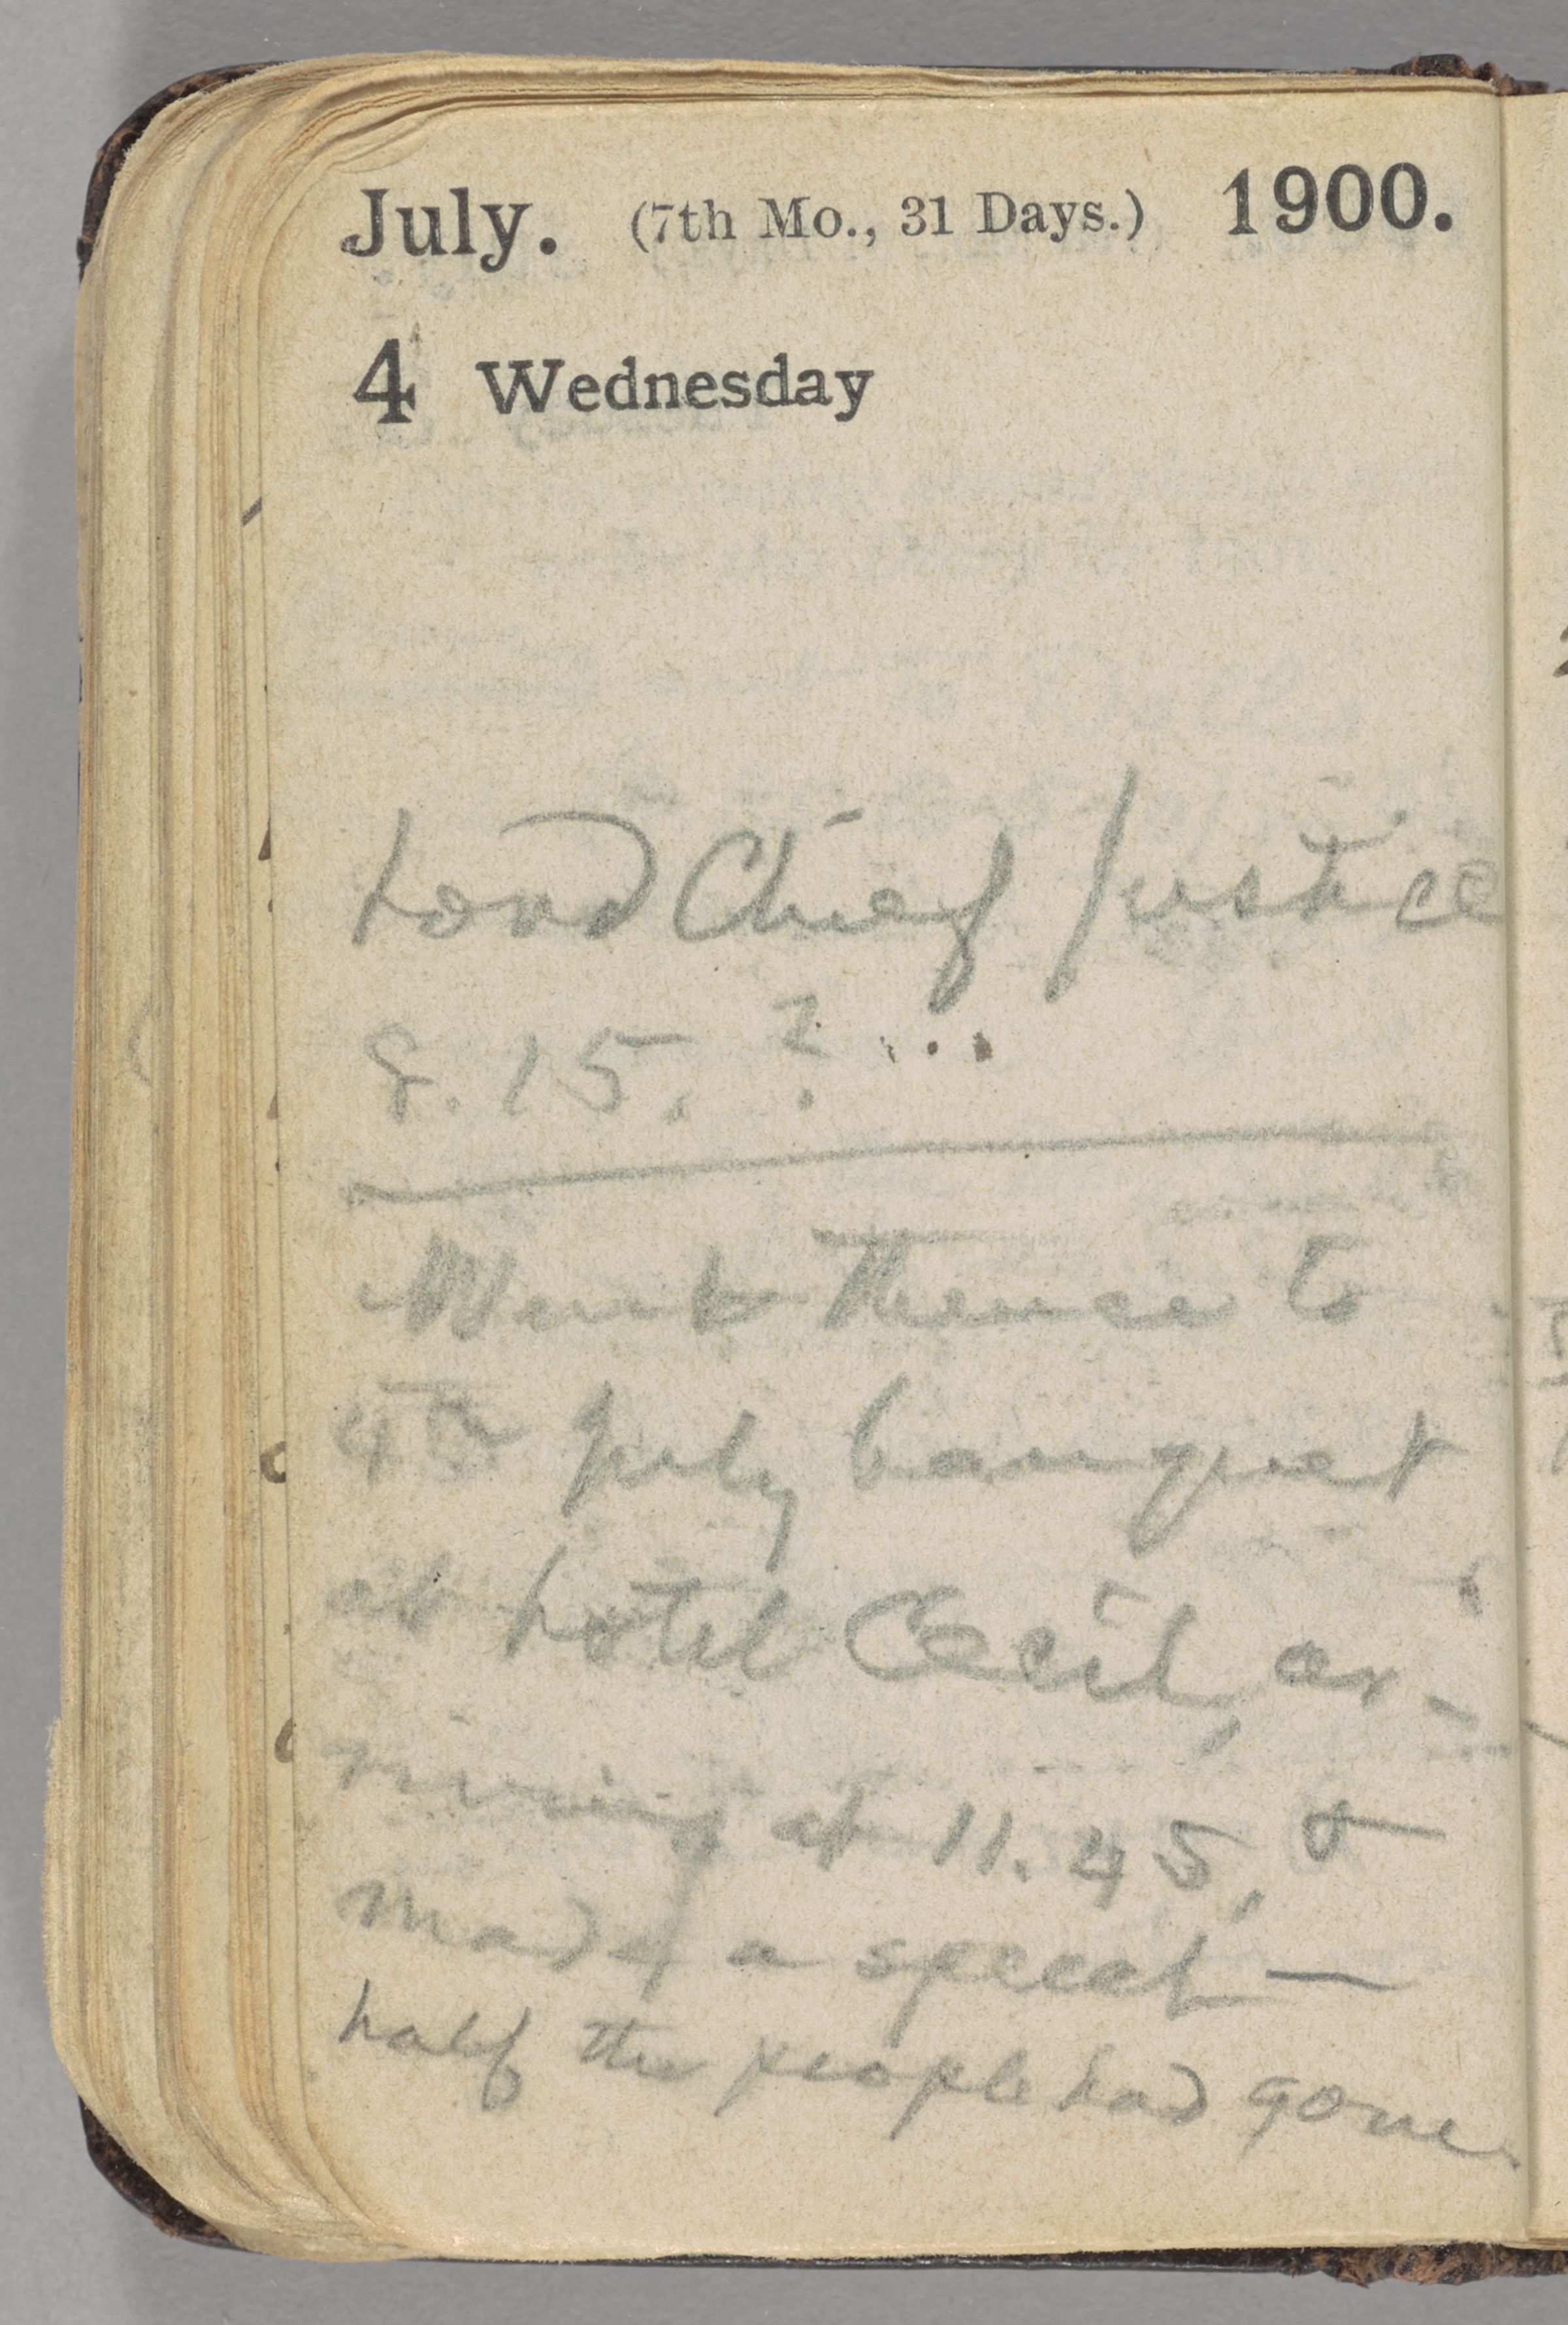 July. (7th Mo., 31 Days.) 1900.
4 Wednesday
Lord Chief Justice
8.15. ?
Went thence to
4th July banquet
at hotel Cecil, ar-
riving at 11.45, &
made a speech —
half the people had gone.